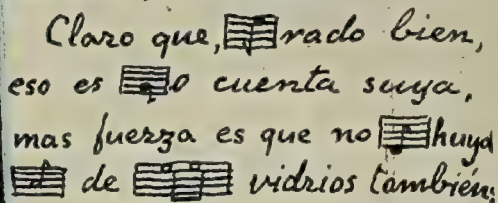 Claro que, rado bien,
eso es o cuenta suya,
mas fuerza es que no huya
de vidrios también,